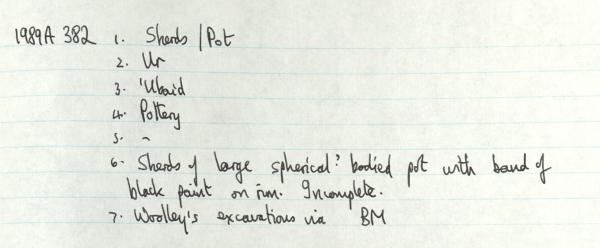 1989A 382 1. Sherds / Pot
2. Ur
3. 'Ubaid
4. Pottery
5. -
6. Sherds of large spherical? bodied pot with band of
black paint on rim. Incomplete.
7. Woolley's excavations via BM